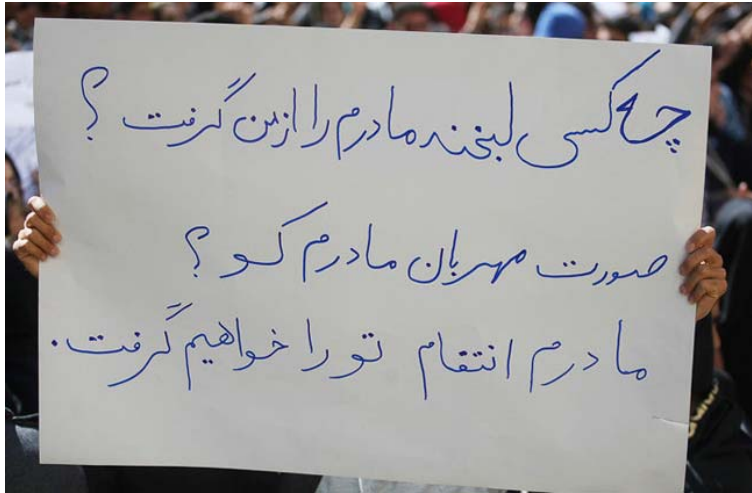 چه کسی لبخند مادرم را از من گرفت؟
صورت مهربان مادرم کو؟
مادرم انتقام تو را خواهیم گرفت.